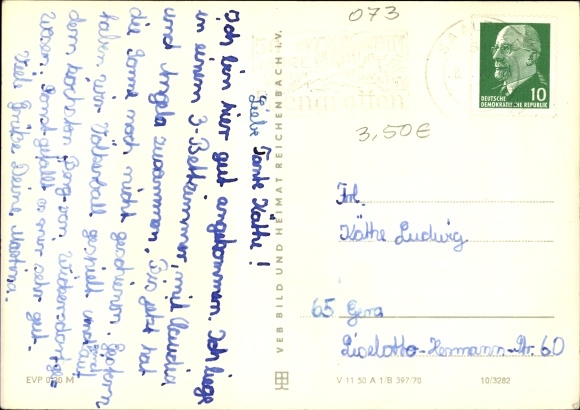 Liebe Tante Käthe!
Ich bin hier gut angekommen. Ich liege
in einem 3-Bettzimmer, mit Claudia
und Angela zusammen. Bis jetzt hat
die Sonne noch nicht geschienen. Gestern
haben wir Völkerball gespielt und
dem höchsten Berg von
waren. Sonst gefällt es mir sehr gut.
Viele Grüße Deine Martina.
VEB BILD UND HEIMAT REICHENBACH I.V.
073
3,50€
DEUTSCHE
DEMOKRATISCHE REPUBLIK
10
Frl.
Käthe Ludwig
65 Gera
Liselotte-Hermann-Str. 60
EVP 0,20 M
V 11 50 A 1/B 397/70
10/3282